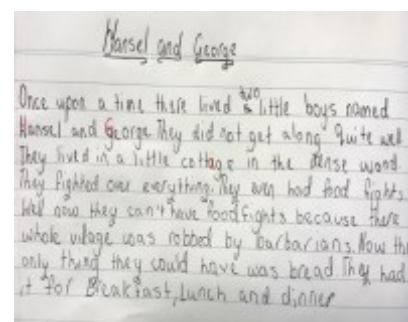 Hansel and George
Once upon a time there lived two little boys named
Hansel and George. They did not get along quite well
They lived in a little cottage in the dense wood.
They fighted over everything. They even had food fights.
Well now they can't have food fights because there
whole village was robbed by barbarians. Now the
only thing they could have was bread. They had
it for Breakfast, Lunch and dinner